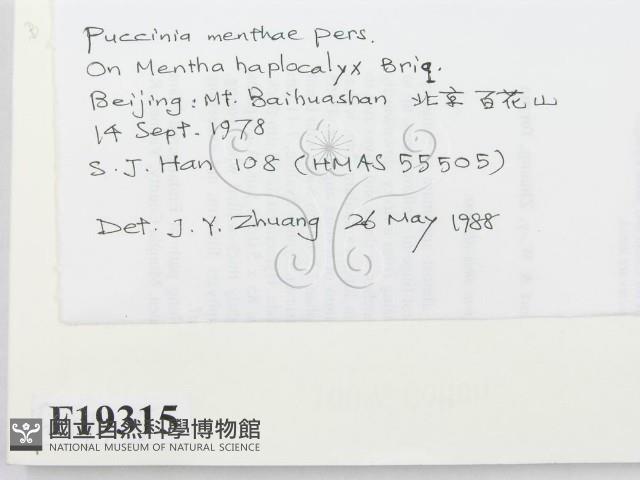 Puccinia menthae Pers.
On Mentha haplocalyx Briq.
Beijing: Mt. Baihuashan 北京百花山
14 Sept. 1978
S. J. Han 108 (HMAS 55505)
Det. J. Y. Zhuang 26 May 1988
F19315
國立自然科學博物館
NATIONAL MUSEUM OF NATURAL SCIENCE